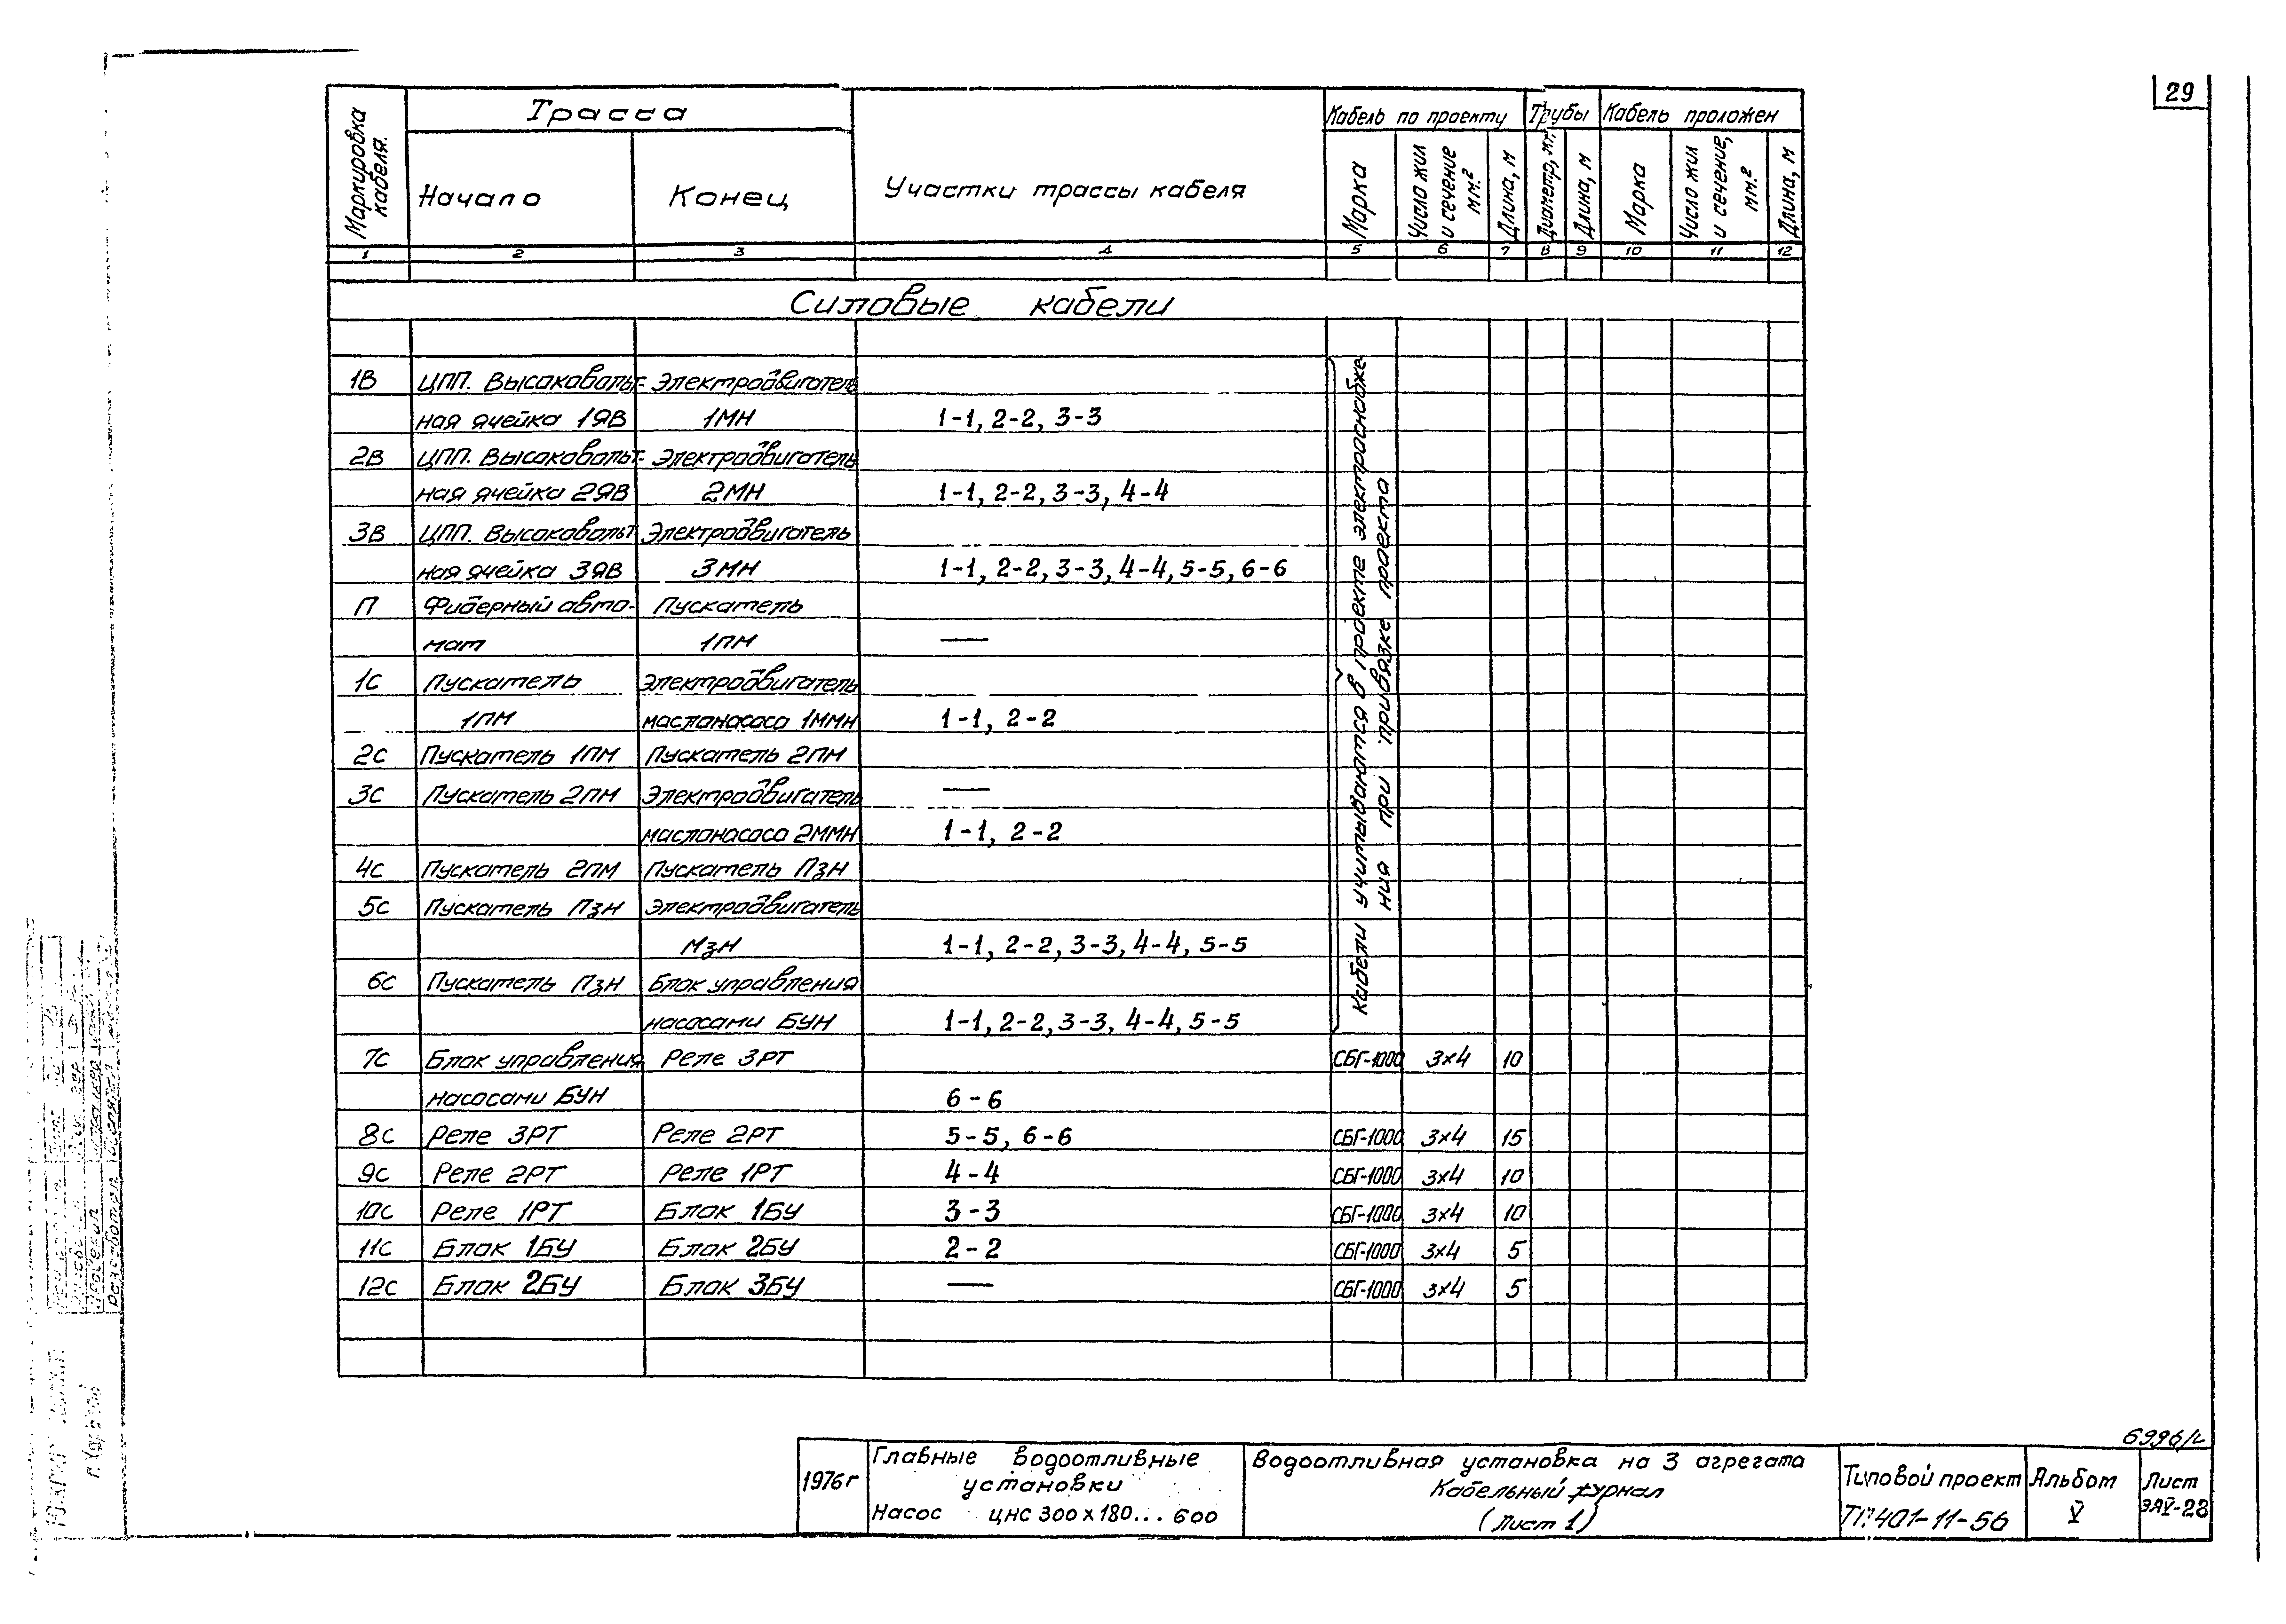 29
Маркировка кабеля.
Трасса
Начало
Конец
Участки трассы кабеля
Кабель по проекту
Марка
Число жил и сечение мм.²
Длина, м
Трубы
Диаметр, мм.
Длина, м
Кабель проложен
Марка
Число жил и сечение, мм.²
Длина, м
1 2 3 4 5 6 7 8 9 10 11 12
Силовые кабели
1В ЦПП. Высоковольт- Электродвигатель
ная ячейка 1ЯВ 1МН 1-1, 2-2, 3-3
2В ЦПП. Высоковольт- Электродвигатель
ная ячейка 2ЯВ 2МН 1-1, 2-2, 3-3, 4-4
3В ЦПП. Высоковольт Электродвигатель
ная ячейка 3ЯВ 3МН 1-1, 2-2, 3-3, 4-4, 5-5, 6-6
П Фидерный авто- Пускатель
мат 1ПМ —
1с Пускатель Электродвигатель
1ПМ маслонасоса 1ММН 1-1, 2-2
2с Пускатель 1ПМ Пускатель 2ПМ
3с Пускатель 2ПМ Электродвигатель —
маслонасоса 2ММН 1-1, 2-2
4с Пускатель 2ПМ Пускатель ПзН
5с Пускатель ПзН Электродвигатель
МзН 1-1, 2-2, 3-3, 4-4, 5-5
6с Пускатель ПзН Блок управления
насосами БУН 1-1, 2-2, 3-3, 4-4, 5-5
Кабели учитываются в проекте электроснабже
ния при привязке проекта
7с Блок управления Реле 3РТ СБГ-1000 3×4 10
насосами БУН 6-6
8с Реле 3РТ Реле 2РТ 5-5, 6-6 СБГ-1000 3×4 15
9с Реле 2РТ Реле 1РТ 4-4 СБГ-1000 3×4 10
10с Реле 1РТ Блок 1БУ 3-3 СБГ-1000 3×4 10
11с Блок 1БУ Блок 2БУ 2-2 СБГ-1000 3×4 5
12с Блок 2БУ Блок 3БУ — СБГ-1000 3×4 5
1976г
Главные водоотливные
установки
Насос ЦНС 300×180...600
Водоотливная установка на 3 агрегата
Кабельный журнал
(Лист 1)
Типовой проект
ТП 401-11-56
Альбом
V
Лист
ЭАV-28